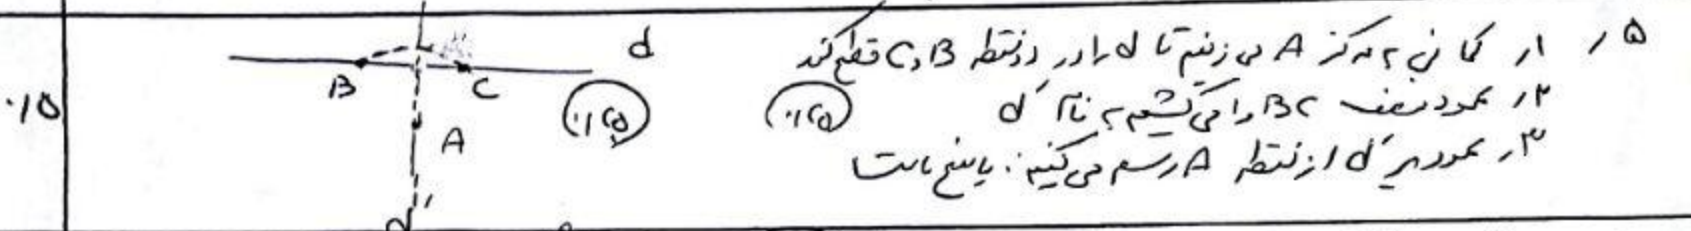 ۵ ر ۱ر کمانی به مرکز A می زنیم تا d را در دو نقطه B و C قطع کند
۲ر عمود منصف BC را می کشیم به نام d'
۳ر عمود بر d' از نقطه A رسم می کنیم: پاسخ ماست
d
B
C
A
d'
۰/۲۵
۰/۲۵
۰/۵